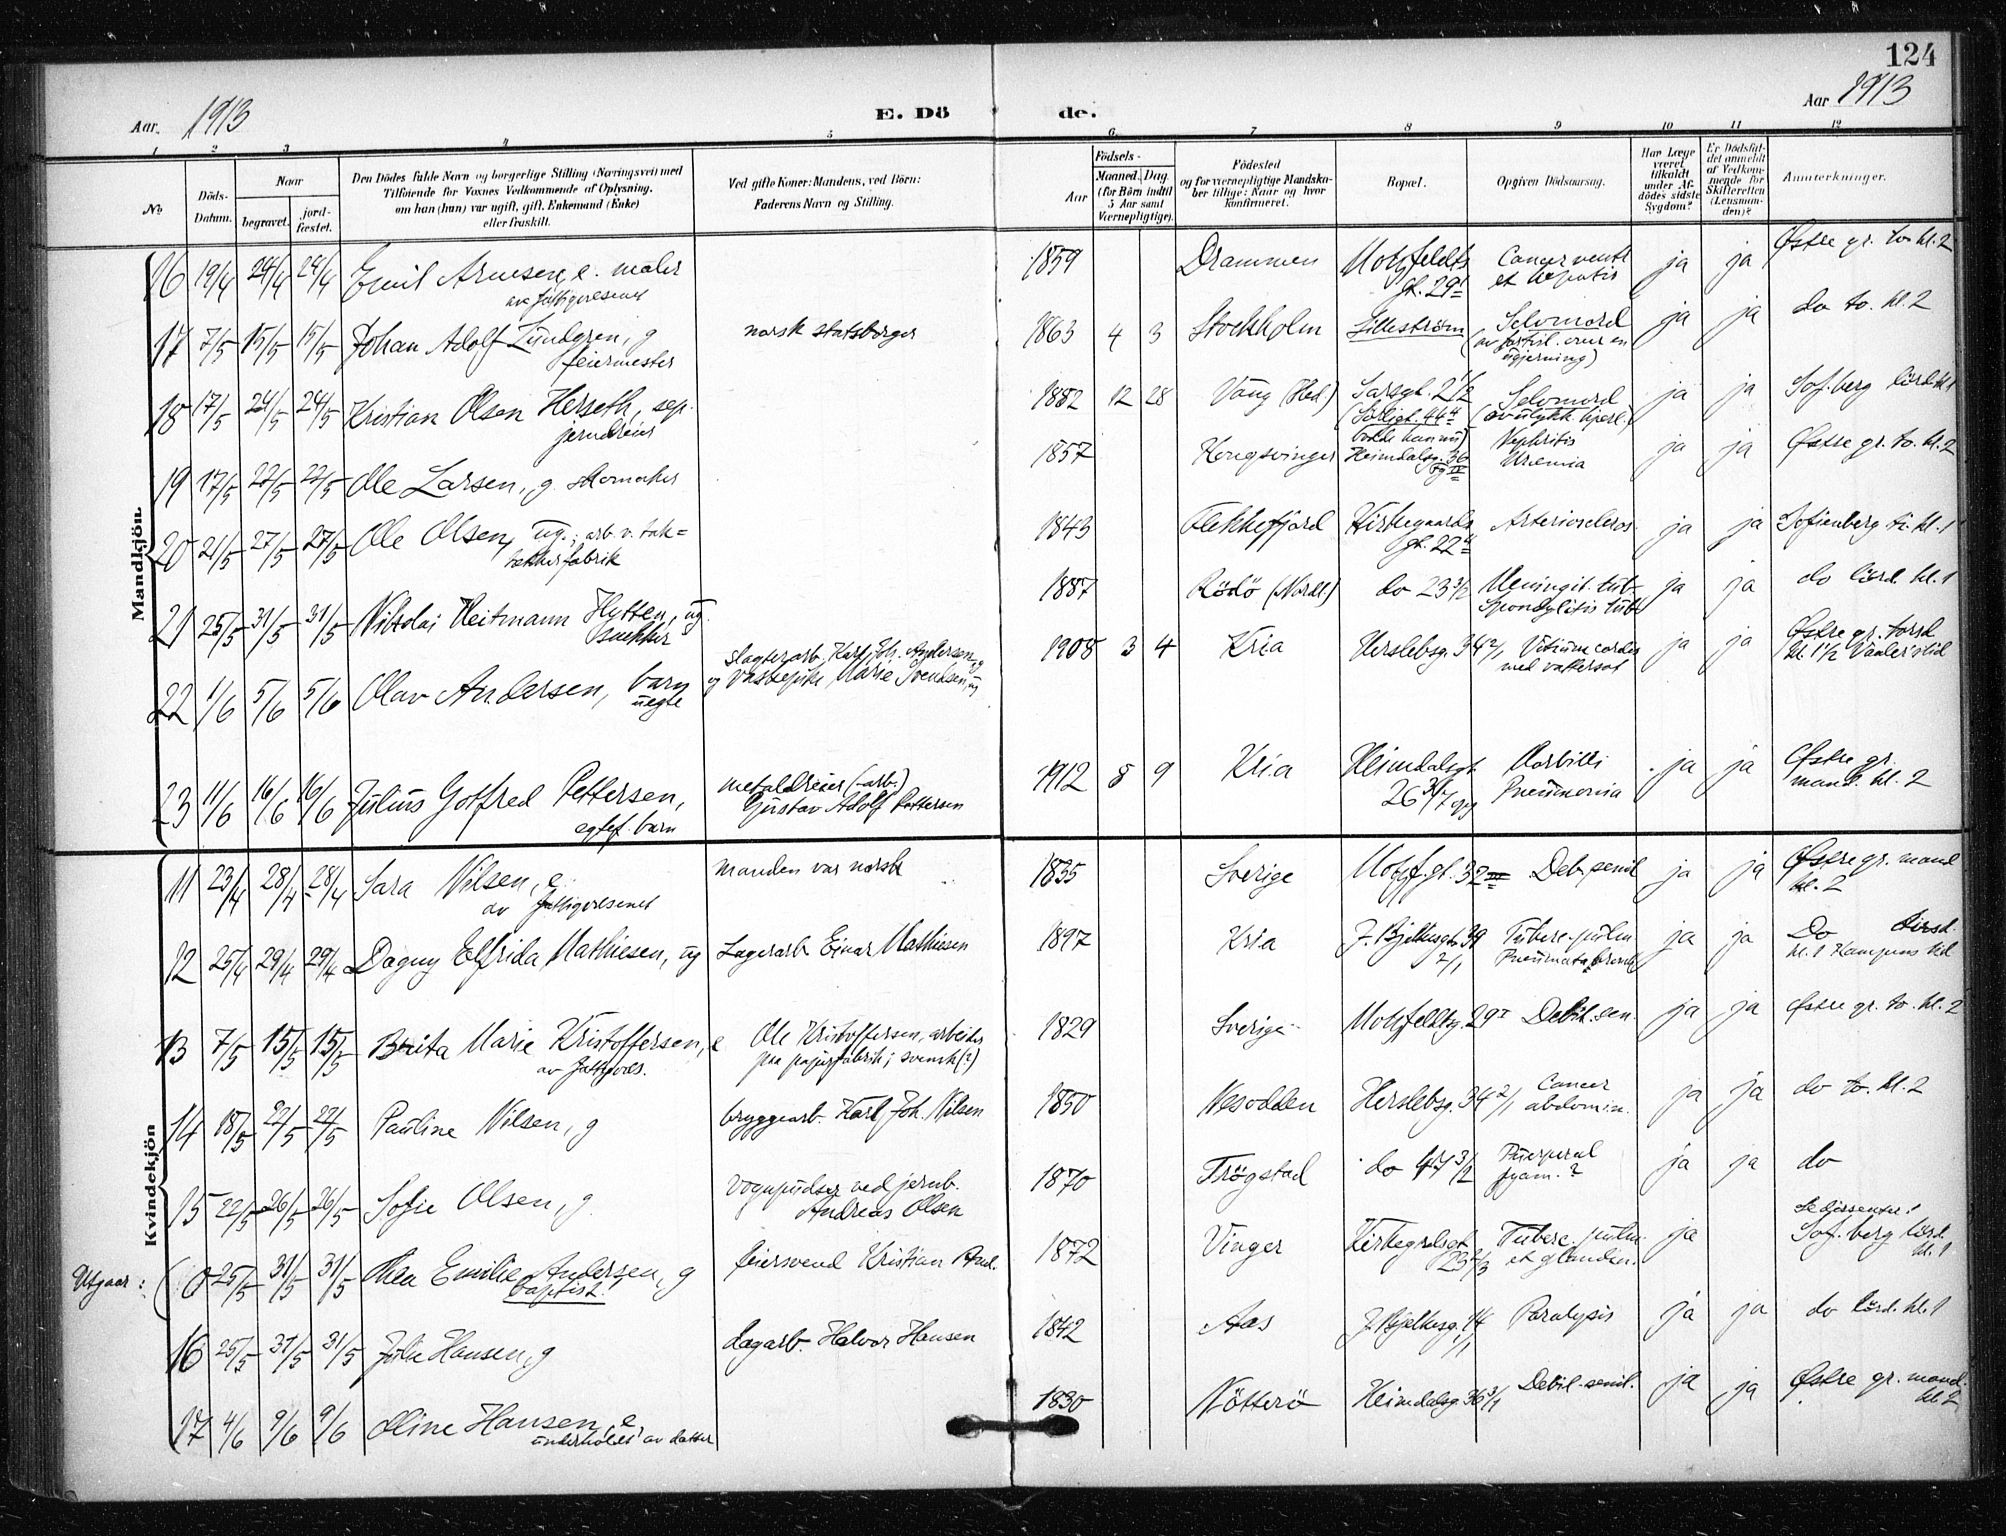 124
Aar. 1913
E. Dö de.
Aar 1913
1 2 3 4 5 6. 7 8 9 10 11 12
No
Döds-
Datum.
Naar
begravet.
jord-
fæstet.
Den Dödes fulde Navn og borgerlige Stilling (Næringsvei) med
Tilföiende for Voxnes Vedkommende af Oplysning,
om han (hun) var ugift, gift, Enkemand (Enke)
eller fraskilt.
Ved gifte Koner: Mandens, ved Börn:
Faderens Navn og Stilling.
Födsels-
Aar
Maaned. Dag
(for Börn indtil
5 Aar samt
Værnepligtige).
Födested
og for værnepligtige Mandska-
ber tillige: Naar og hvor
konfirmeret.
Bopæl.
Opgiven Dödsaarsag.
Har Læge
været
tilkaldt
under Af-
dödes sidste
Sygdom?
Er Dödsfal-
det anmeldt
af Vedkom-
mende for
Skifteretten
(Lensman-
den)?
Anmerkninger.
Mandkjön.
16 19/4 24/4 24/4 Emil Arnesen, e. maler 1859 Drammen Motzfeldts gt. 29 Cancer ventr. et hepatis ja ja Østre gr. to. kl. 2
av fattigvesenet
17 7/5 15/5 15/5 Johan Adolf Lundgren, g feiermester norsk statsborger 1863 4 3 Stockholm Lilleström Selvmord ja ja do to. kl. 2
18 17/5 24/5 24/5 Kristian Olsen Herseth, sep. jerndreier 1882 12 28 Vang (Hed.) Sarsgt. 2 1/2 Selvmord ja ja Sof.berg lörd. kl. 1
19 17/5 22/5 22/5 Ole Larsen, g. skomaker 1857 Kongsvinger Heimdalsg. 36 Nephritis Uræmia ja ja Østre gr. to. kl. 2
20 21/5 27/5 27/5 Ole Olsen, ug.; arb. v. tak= 1843 Flekkefjord Kirkegaards gt. 22 Arterioscleros. ja ja Sofienberg ti. kl. 1
21 25/5 31/5 31/5 Nikolai Heitmann Hytten, ug. snekker 1887 Rödö (Nordl.) do 23 3/2 Meningit. tub. Spondylitis tub. ja ja do lörd. kl. 1
22 1/6 5/6 5/6 Olav Andersen, barn uegte Slagterarb. Karl Joh. Andersen, g og vaskepike Marie Svendsen, ug 1908 3 4 Kria Herslebsg. 34 2/1 Vitium cordis med vattersot ja ja Østre gr. torsd. kl. 1 1/2
23 11/6 16/6 16/6 Julius Gotfred Pettersen, egtef. barn metaldreier (-arb.) Gustav Adolf Pettersen 1912 8 9 Kria Heimdalsgt. 26 Morbilli Pneumonia ja ja Østre gr. mand. kl. 2
Kvindekjön
11 23/4 28/4 28/4 Sara Nilsen, e. av fattigvesenet manden var norsk 1835 Sverige Motzf.gt. 32 III Deb. senil ja ja Østre gr. mand kl. 2
12 25/4 29/4 29/4 Dagny Elfrida Mathiesen, ug Lagerarb. Einar Mathiesen 1897 Kria J. Bjelkesgt. 39 2/1 Tuberc. pulm ja ja Do tirsd. kl. 1
13 7/5 15/5 15/5 Brita Marie Kristoffersen, e av fattigves. Ole Kristoffersen, arbeider paa papirfabrik; svensk (?) 1829 Sverige Motzfeldtsg. 29 I Debil. sen. ja ja Østre gr. to. kl. 2
14 18/5 22/5 22/5 Pauline Nilsen, g bryggearb. Karl Joh. Nilsen 1850 Nesodden Herslebsg. 34 2/1 Cancer abdomin. ja ja do to. kl. 2
15 22/5 26/5 26/5 Sofie Olsen, g. Vognpudser ved jernb. Andreas Olsen 1870 Trögstad do 47 3/2 Puerperal pyæm. ? ja ja do
Utgaar: ( 0 25/5 31/5 31/5 Thea Emilie Andersen, g baptist! feiersvend Kristian And. 1872 Vinger Kirkegrdsgt. 23 2/3 Tuberc. pulm. et glandul. ja Se dissenter! Sof. berg lörd. kl. 1
16 25/5 31/5 31/5 Julie Hansen, g dagarb. Halvor Hansen 1842 Aas J. Bjelkesg. 14 1/1 Paralysis ja ja do lörd. kl. 1
17 4/6 9/6 9/6 Oline Hansen, e. underholdt av datter 1830 Nötterö Heimdalsg. 36 3/1 Debil. senil. ja ja Østre gr. mand. kl. 2